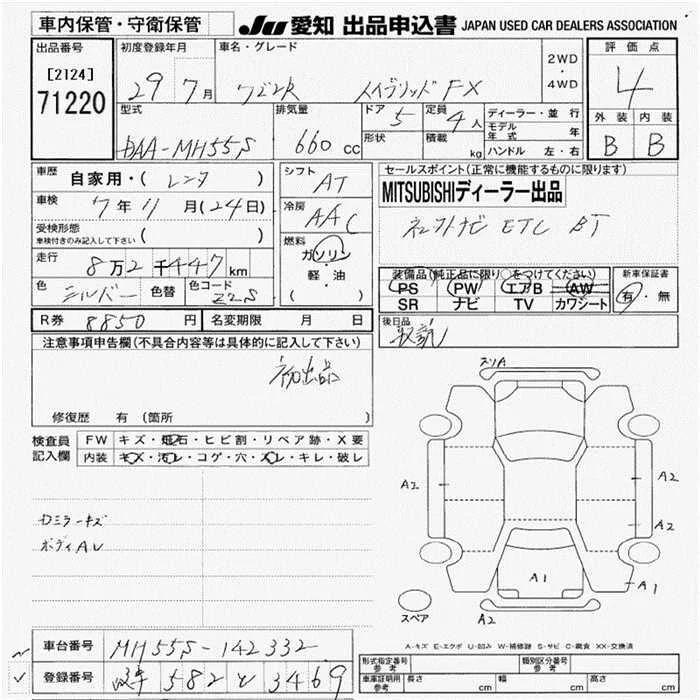 車内保管・守衛保管
JU 愛知 出品申込書 JAPAN USED CAR DEALERS ASSOCIATION
出品番号
[2124]
71220
初度登録年月
29 7月
車名・グレード
ワゴンR ハイブリッドFX
2WD
・
4WD
評価点
4
外装 内装
B B
型式
DAA-MH55S
排気量
660 cc
ドア 5
形状
定員 4人
積載 kg
ディーラー・並行
モデル年式 年
ハンドル 左・右
車歴 自家用・( レンタ )
車検 7年11月(24日)
受検形態
車検付きのみ記入して下さい ( )
走行 8万2千447km
色 シルバー 色替 色コード Z2S
シフト AT
冷房 AAC
燃料
ガソリン
軽・油
( )
セールスポイント(正常に機能するものに限ります)
MITSUBISHIディーラー出品
ETC BT
装備品(純正品に限り○をつけてください)
PS PW エアB AW
SR ナビ TV カワシート
新車保証書
有・無
後日品
取説
R券 8850円 名変期限 月 日
注意事項申告欄(不具合内容等は具体的に記入して下さい)
初出品
修復歴 有(箇所 )
検査員
記入欄
FW キズ・飛石・ヒビ割・リペア跡・X要
内装 キズ・汚レ・コゲ・穴・スレ・キレ・破レ
カミラーキズ
ボディAU
スリA
A2
A2
A2
A1
A1
A2
スペア
A-キズ E-エクボ U-凹み W-補修跡 S-サビ C-腐食 XX-交換済
車台番号 MH55S-142332
登録番号 582 と 3469
形式指定番号
参考
類別区分番号
参考
車庫証明用
参考
長さ cm 幅 cm 高さ cm